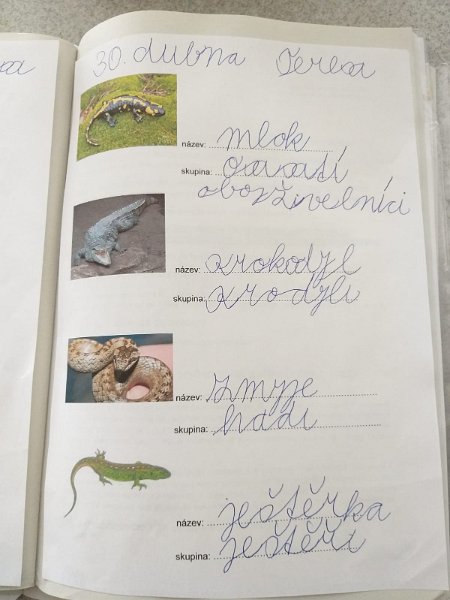 30. dubna Tereza
název: mlok
skupina: ocasatí
obojživelníci
název: krokodýl
skupina: krodýli
název: zmije
skupina: hadi
název: ještěrka
skupina: ještěři